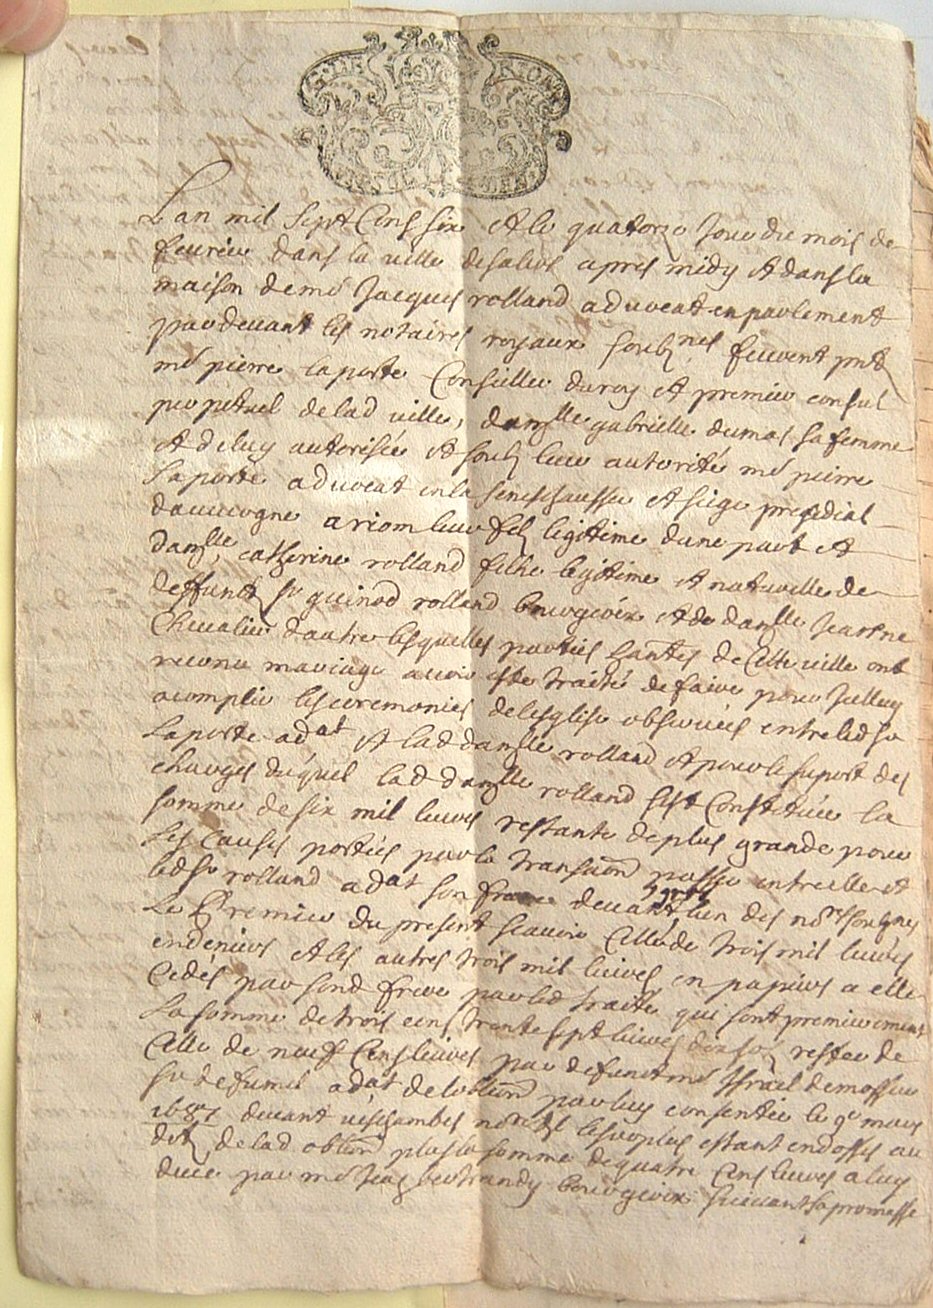 G. DE RIOM
Lan mil sept cens six et le quatorze jour du mois de
feuvrier dans la ville desalers apres midy et dans la
maison de me Jacques rolland aduocat en parlement
par deuant les notaires royaux soubznes feurent pnts
me pierre laporte Conseiller du roy et premier consul
perpetuel de lad ville, damzlle gabrielle dumas sa femme
et de luy autorisée et soubz leur autorité me pierre
Laporte aduocat en la senechaussee et siege presidial
dauuergne a riom leur filz legitime dune part et
damzlle catherine rolland fille legitime et naturelle de
deffunct sr guinod rolland bourgeoix et de damzlle Jeanne
Cheualier dautre lesquelles parties hantes de cette ville ont
reconu mariage auoir este traité de faire pour Jcelluy
acomplir les ceremonies de lesglise obseruées entre led sr
Laporte adat et lad damzlle rolland et pour le suport des
charges duquel lad damzlle rolland sest Constituée la
somme de six mil liures restante de plus grande pour
Les Causes portées par la transaon passée entre elle et
led sr rolland adat son frere deuant lun des nores soubznes
Le premier du present scauoir Celle de trois mil liures
en deniers et les autres trois mil liures en papiers a elle
Cedés par sond frere par led traité qui sont premierement
La somme de trois cens trente sept liures dix solz restee de
Celle de neuf Cens liures par defunct me Jsrael demossier
sr defumel adat de loblion par luy consentie le 9e mars
1687 deuant ueschambes nore les copies estant endossés au
dos de lad oblion plus la somme de quatre Cens liures a luy
deue par me Jean bertrandy bourgeoix suiuant sa promesse